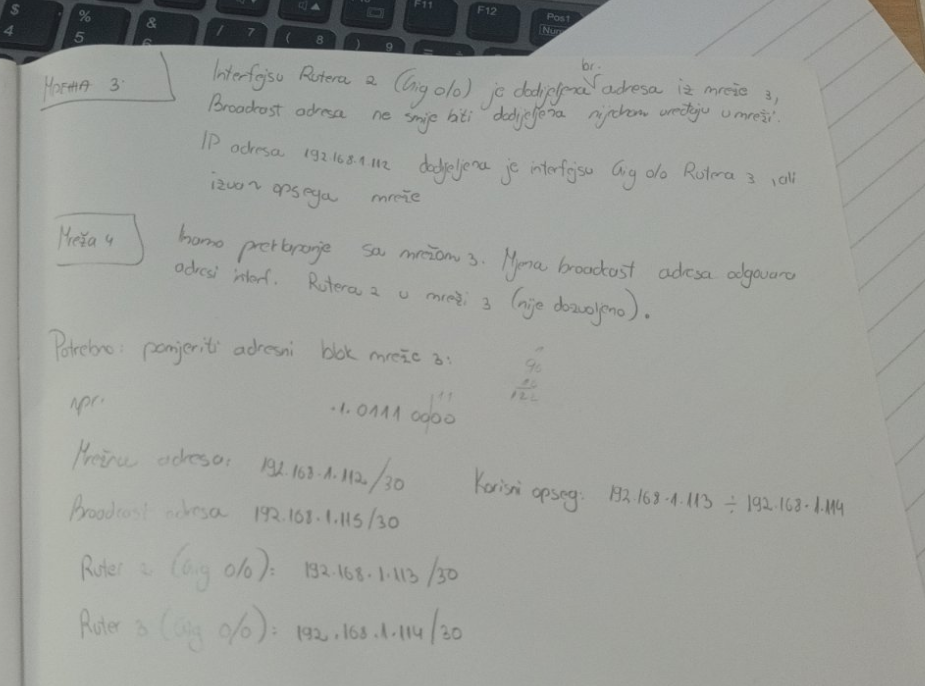 $ % & / ( ) =
4 5 6 7 8 9
F11 F12 Pos1
Num
Мрежа 3:
br.
Interfejsu Rutera 2 (Gig 0/0) je dodijeljena adresa iz mreže 3,
Broadcast adresa ne smije biti dodijeljena nijednom uređaju u mreži.
IP adresa 192.168.1.112 dodjeljena je interfejsu Gig 0/0 Rutera 3, ali
izvan opsega mreže
Mreža 4
Imamo preklapanje sa mrežom 3. Njena broadcast adresa odgovara
adresi interf. Rutera 2 u mreži 3 (nije dozvoljeno).
Potrebno: pomjeriti adresni blok mreže 3:
npr. .1.0111 0000
Mrežna adresa: 192.168.1.112/30 Korisni opseg: 192.168.1.113 ÷ 192.168.1.114
Broadcast adresa 192.168.1.115/30
Ruter 2 (Gig 0/0): 192.168.1.113/30
Ruter 3 (Gig 0/0): 192.168.1.114/30